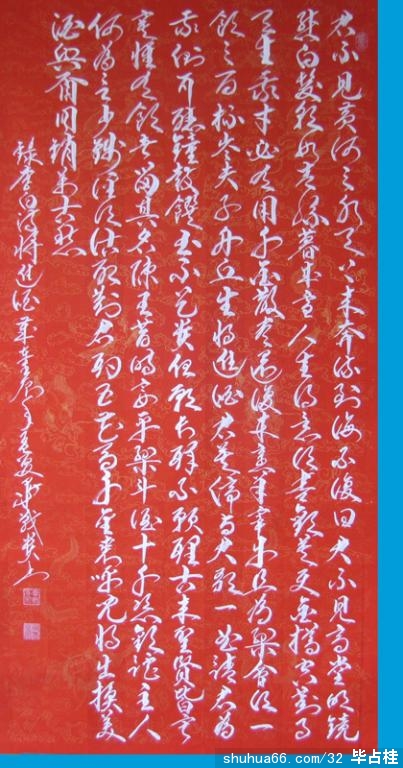 君不见黄河之水天上来奔流到海不复回君不见高堂明镜
悲白发朝如青丝暮成雪人生得意须尽欢莫使金樽空对月
天生我才必有用千金散尽还复来烹羊宰牛且为乐会须一
饮三百杯岑夫子丹丘生将进酒君莫停与君歌一曲请君为
我侧耳听钟鼓馔玉不足贵但愿长醉不愿醒古来圣贤皆寂
寞惟有饮者留其名陈王昔时宴平乐斗酒十千恣欢谑主人
何为言少钱径须沽取对君酌五花马千金裘呼儿将出换美
酒与尔同销万古愁
录李白诗将进酒
shuhua66.com/32 毕占桂